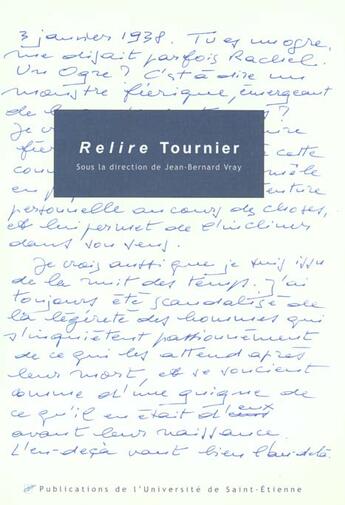 3 janvier 1938. Tu es un ogre,
me disait parfois Rachel.
Un Ogre ? C'est à dire un
monstre féerique, émergeant
de la
Je cr
féer
com
en p
Relire Tournier
Sous la direction de Jean-Bernard Vray
personnelle au cours des choses,
et lui permet de l'incliner
dans son sens.
Je crois aussi que je suis issu
de la nuit des temps. J'ai
toujours été scandalisé de
la légèreté des hommes qui
s'inquiètent passionnément
de ce qui les attend après
leur mort, et se soucient
comme d'une guigne de
ce qu'il en était d'eux
avant leur naissance.
L'en-deçà vaut bien l'au-delà
Publications de l'Université de Saint-Étienne